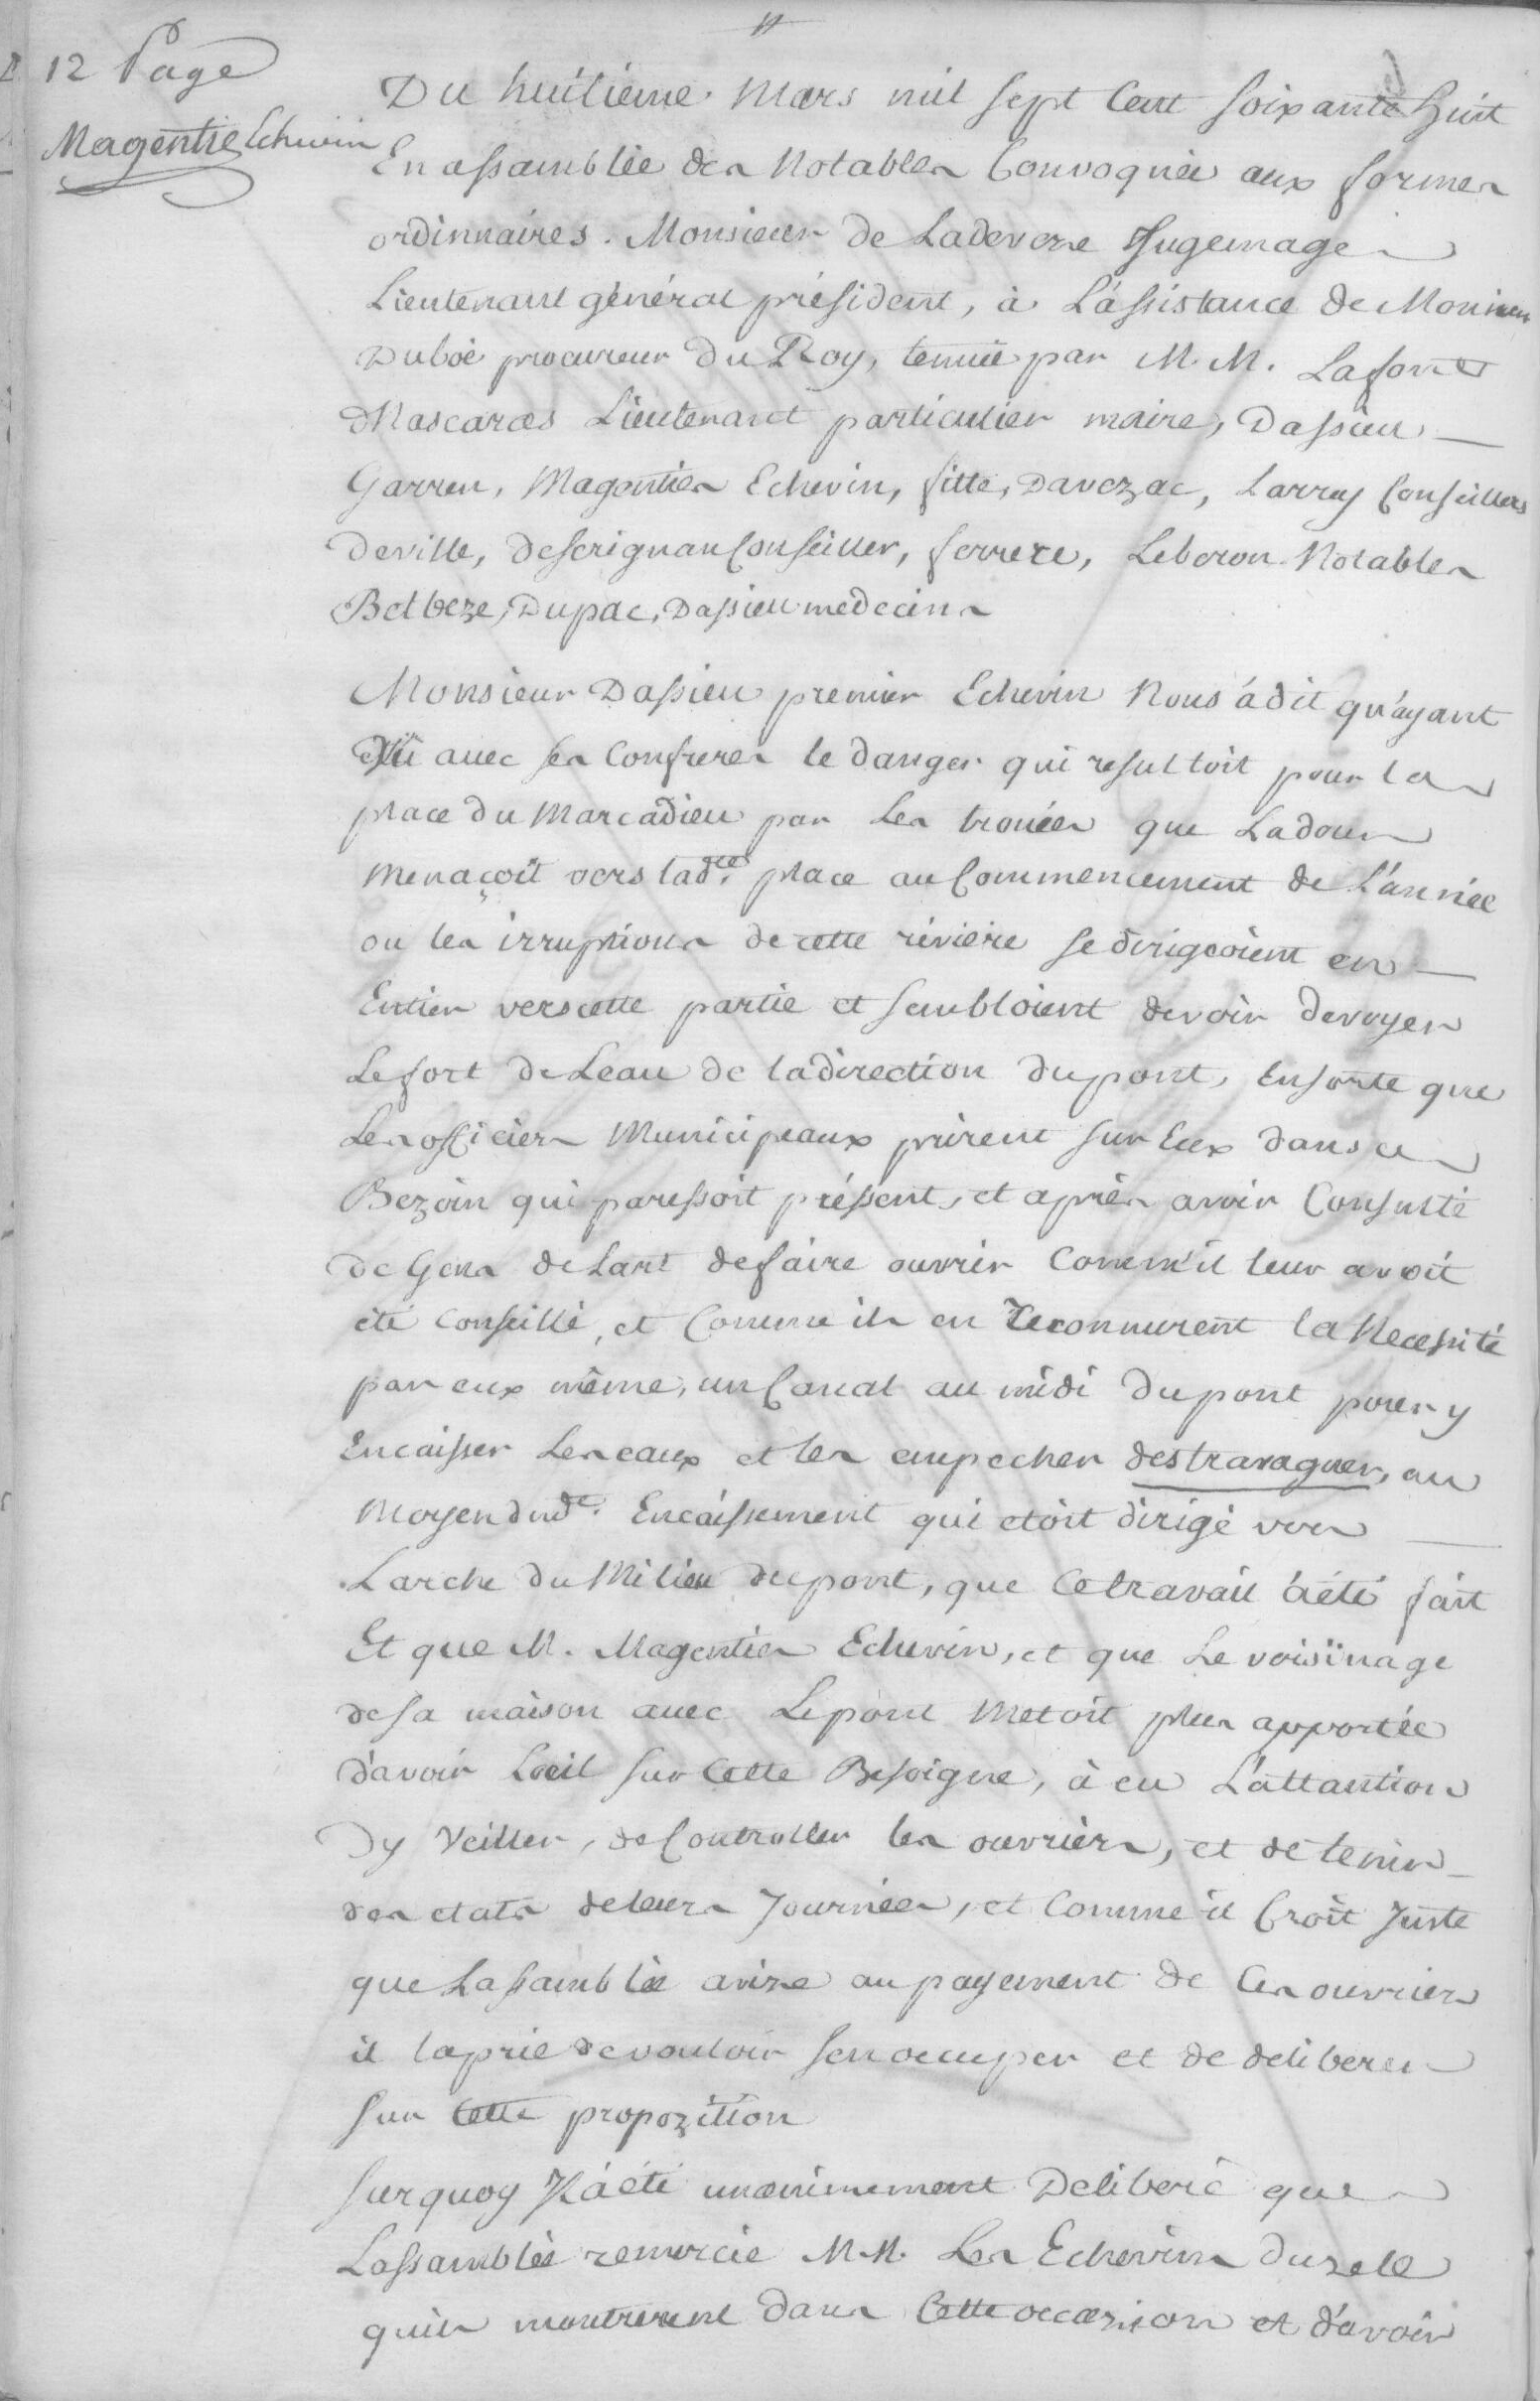 12 Page
Magentie Echevin
Du huitiéme Mars mil sept Cent soixante huit
En assamblée des Notables Convoquée aux formes
ordinnaires. Monsieur de Ladeveze Jugemage
Lieutenant général président, à Lássistance de Monsieur
Duboé procureur du Roy, tenuë par M.M. Lafont
Mascaras Lieutenant particulier maire, Dassieu
Garreu, Magentier Echevin, fitte, Davezac, Larrey Conseillers
deville, deserignan Conseiller, ferrere, Leberon Notables
Belbeze, Dupac, Dassieu medecins
Monsieur Dassieu premier Echevin Nous á dit qu'ayant
vû avec ses Confreres le danger qui resultoit pour la
place du Marcadieu par Les trouées que Ladour
menaçoit vers lad.te place au Commencement de L'année
ou les irruptions de cette riviére se dirigeoient en
Entier vers cette partie et sembloient devoir devoyer
Le fort de Leau de la direction du pont, Ensorte que
Les officiers Municipeaux prirent sur Eux dans ce
Bezoin qui paressoit préssent, et aprés avoir Consulté
de Gens de Lart de faire ouvrir Comm'il leur avoit
été Conseillé, et Comme ils en reconnurent la Necessité
par eux même, un Canal au midi du pont pour y
Encaisser Les eaux et les empecher destravaguer, au
moyen dud.t Encaissement qui etoit dirigé vers
Larche du Milieu du pont, que Ce travail á été fait
Et que M. Magentier Echevin, et que Le voisïnage
de sa maison avec Le pont Metoit plus apportée
d'avoir Loeil sur Cette Besoigne, à eu L'attantion
Dy Veiller, de Controller les ouvriers, et de tenir
des etats de leurs Journées, et Comme il Croit Juste
que Lassamblée avize au payement de Ces ouvriers
il la prie de vouloir sen occuper et de deliberer
sur Cette propozition
Sur quoy Il á été unanimement Deliberé que
Lassamblée remercie M.M. Les Echevins du zele
quils montrerent dans Cette occazion et d'avoir